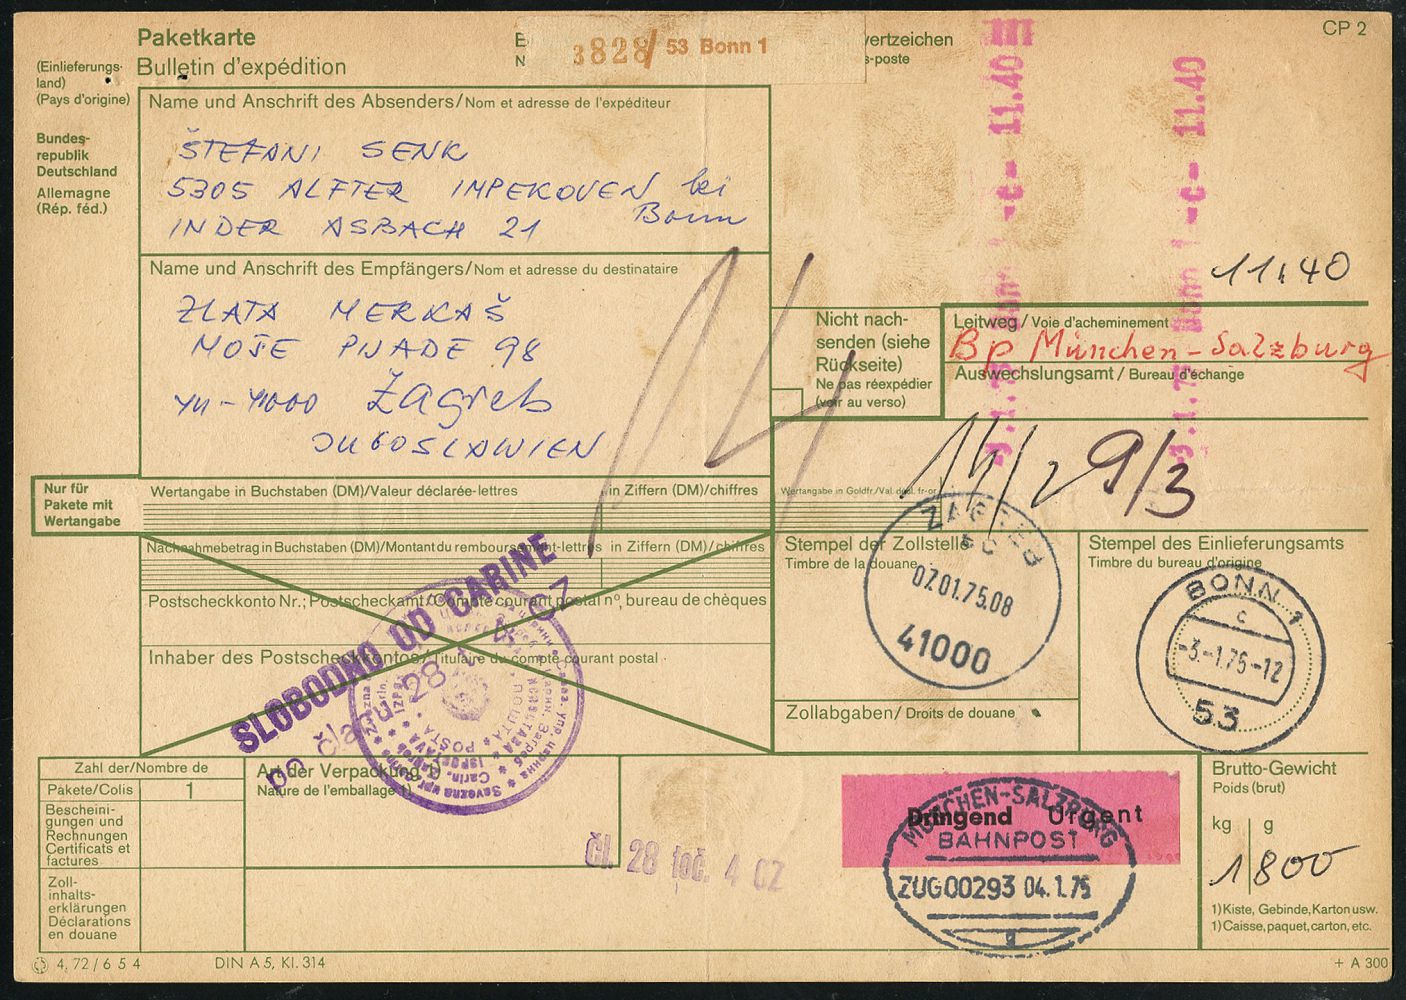 Paketkarte
Bulletin d'expédition
CP 2
3828 53 Bonn 1
wertzeichen
s-poste
(Einlieferungs-
land)
(Pays d'origine)
Bundes-
republik
Deutschland
Allemagne
(Rép. féd.)
Name und Anschrift des Absenders/Nom et adresse de l'expéditeur
ŠTEFANI SENK
5305 ALFTER IMPEKOVEN bei
Bonn
INDER ASBACH 21
Name und Anschrift des Empfängers/Nom et adresse du destinataire
ZLATA MERKAŠ
MOŠE PIJADE 98
YU-41000 Zagreb
JUGOSLAWIEN
14
-3.-1.75 Bonn 1 -c- 11.40
-3.-1.75 Bonn 1 -c- 11.40
11,40
Nicht nach-
senden (siehe
Rückseite)
Ne pas réexpédier
(voir au verso)
Leitweg/Voie d'acheminement
Bp München-Salzburg
Auswechslungsamt/Bureau d'échange
9/3
Nur für
Pakete mit
Wertangabe
Wertangabe in Buchstaben (DM)/Valeur déclarée-lettres
in Ziffern (DM)/chiffres
Wertangabe in Goldfr./Val. décl. fr-or
Nachnahmebetrag in Buchstaben (DM)/Montant du remboursement-lettres
in Ziffern (DM)/chiffres
Postscheckkonto Nr.; Postscheckamt/Compte courant postal n°, bureau de chèques
Inhaber des Postscheckkontos/Titulaire du compte courant postal
SLOBODNO OD CARINE
po članu 28
Stempel der Zollstelle
Timbre de la douane
ZAGREB
07.01.75.08
41000
Stempel des Einlieferungsamts
Timbre du bureau d'origine
BONN 1
c
-3.-1.75-12
53
Zollabgaben/Droits de douane
Zahl der/Nombre de
Pakete/Colis
1
Bescheini-
gungen und
Rechnungen
Certificats et
factures
Zoll-
inhalts-
erklärungen
Déclarations
en douane
Art der Verpackung 1)
Nature de l'emballage 1)
čl. 28 toč. 4 CZ
Dringend Urgent
MÜNCHEN-SALZBURG
BAHNPOST
ZUG 00293 04.1.75
g
Brutto-Gewicht
Poids (brut)
kg g
1 800
1) Kiste, Gebinde, Karton usw.
1) Caisse, paquet, carton, etc.
4.72/654
DIN A 5, Kl. 314
+ A 300